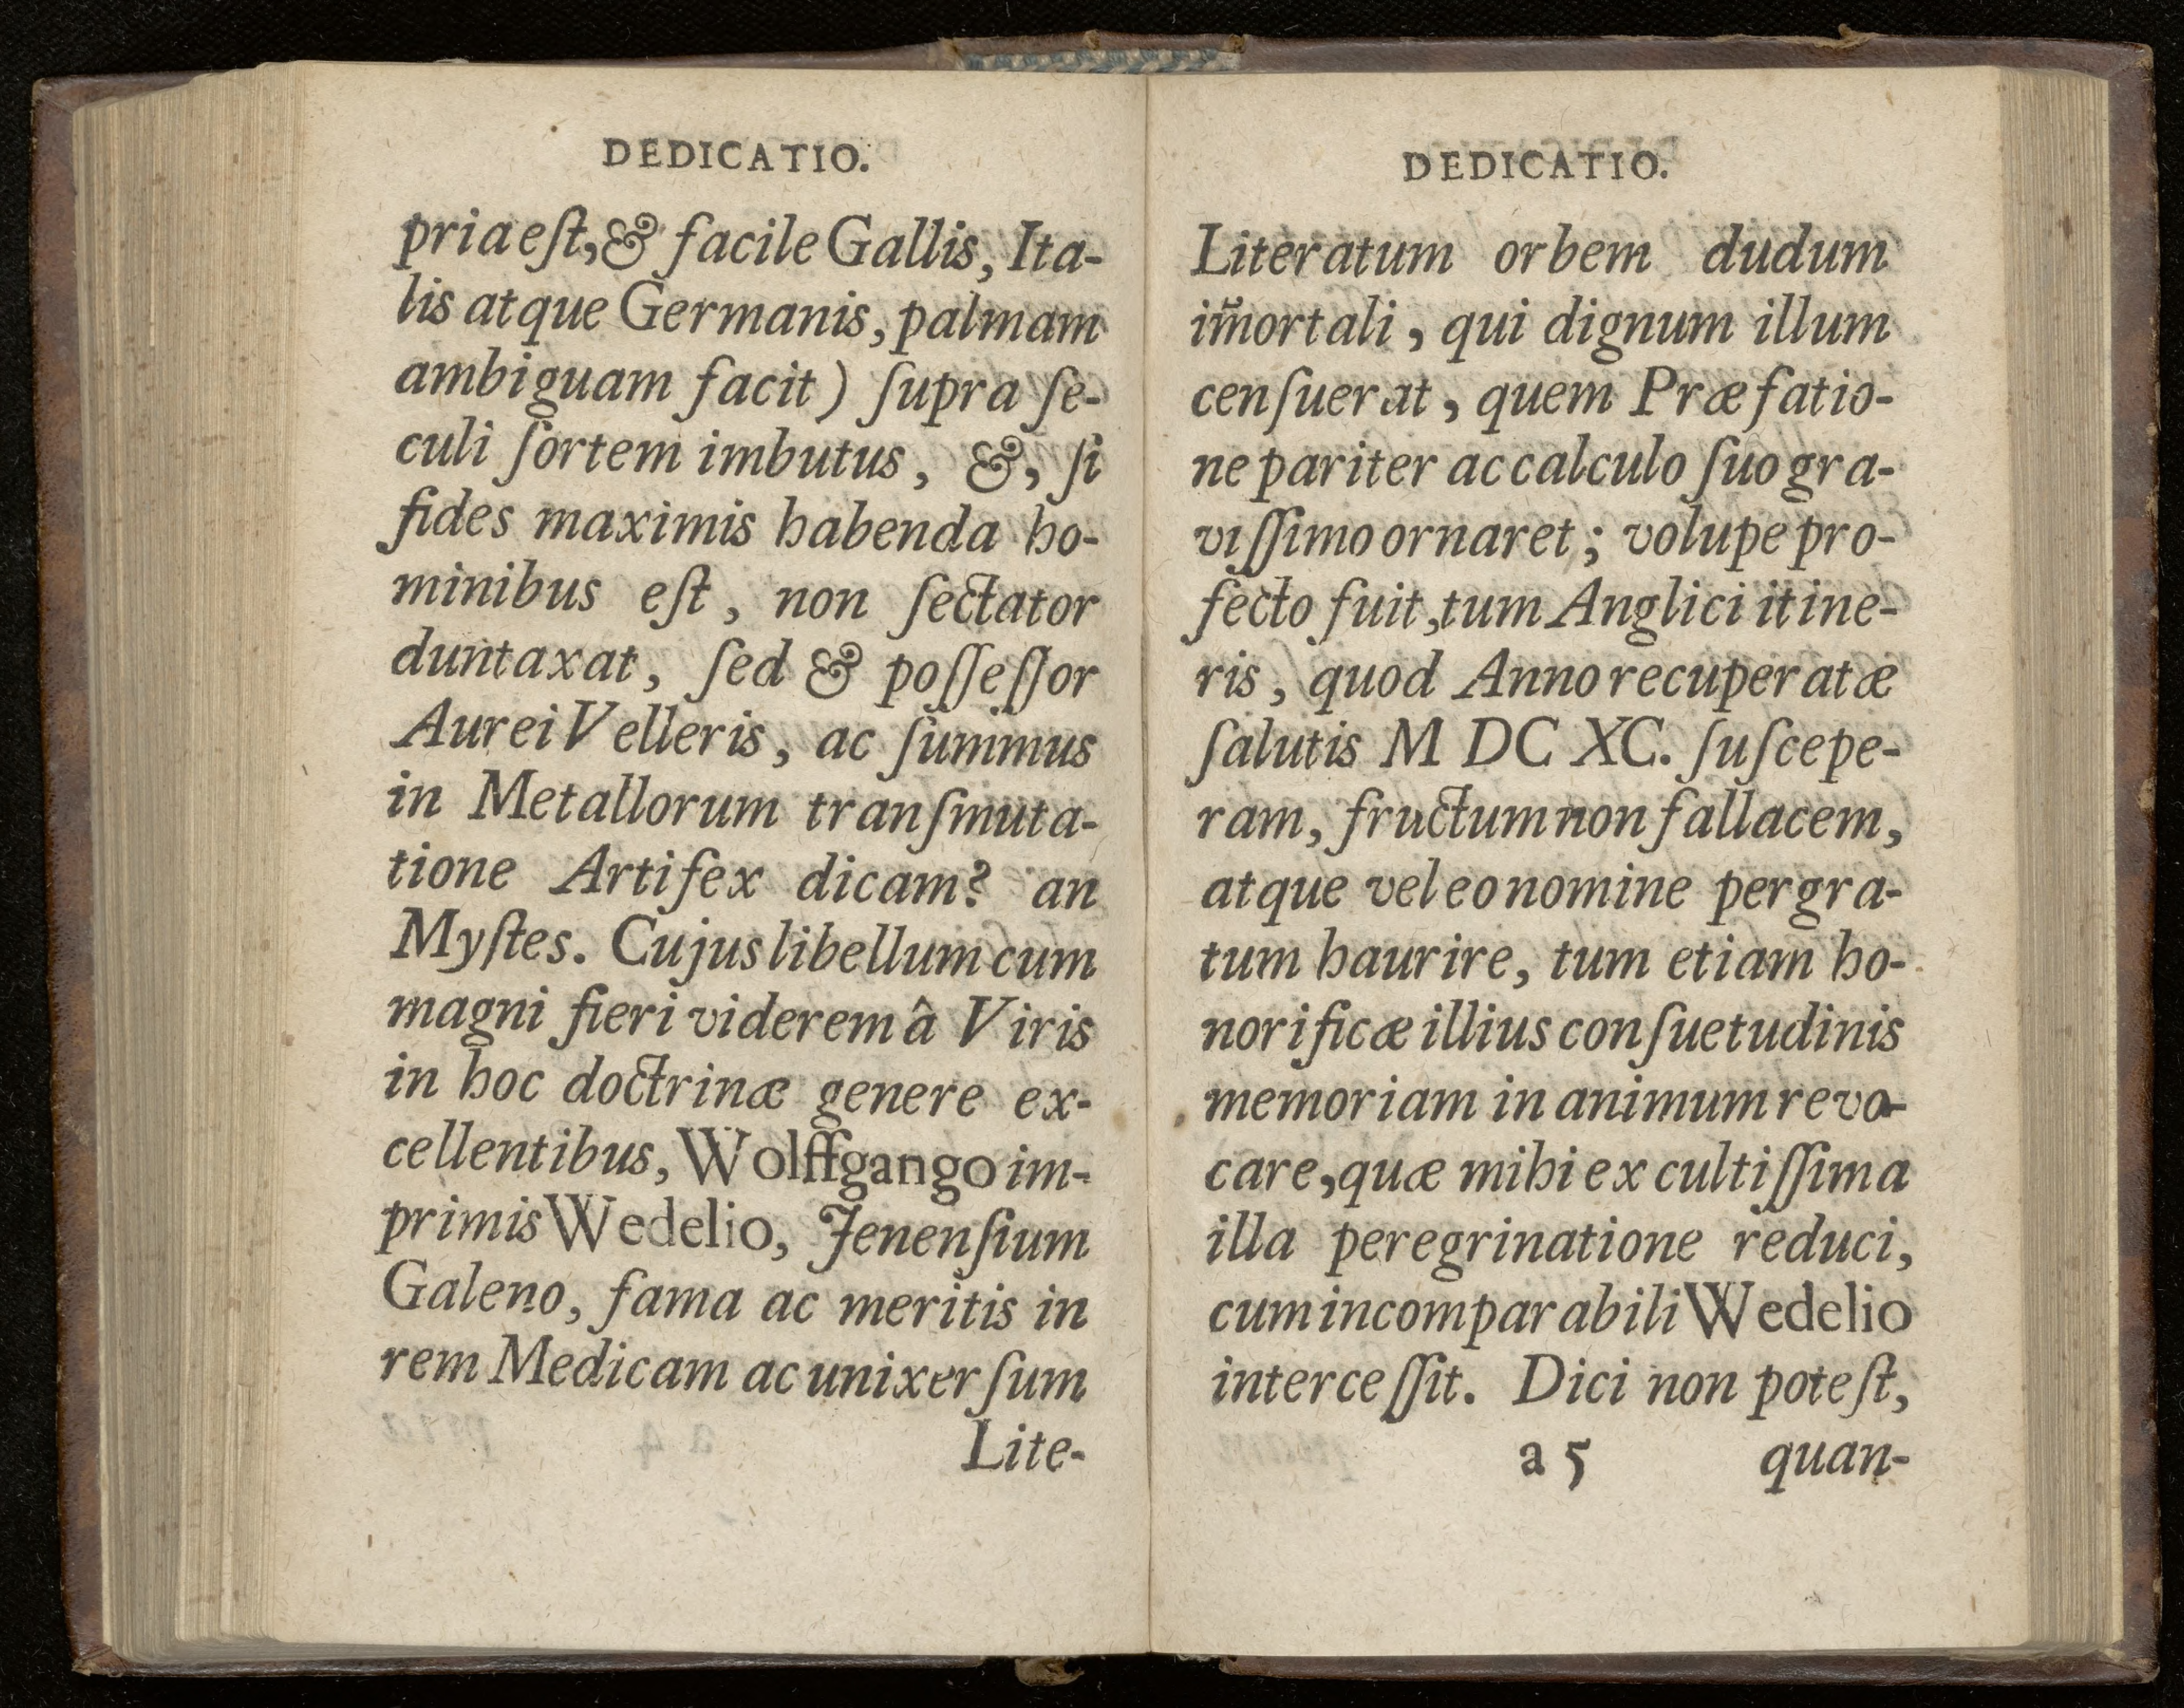 DEDICATIO.
pria eſt, & facile Gallis, Ita-
lis atque Germanis, palmam
ambiguam facit) ſupra ſe-
culi ſortem imbutus, &, ſi
fides maximis habenda ho-
minibus eſt, non ſectator
duntaxat, ſed & poſſeſſor
Aurei Velleris, ac ſummus
in Metallorum tranſmuta-
tione Artifex dicam? an
Myſtes. Cujus libellum cum
magni fieri viderem â Viris
in hoc doctrinæ genere ex-
cellentibus, Wolffgango im-
primis Wedelio, Jenenſium
Galeno, fama ac meritis in
rem Medicam ac unixerſum
Lite-
DEDICATIO.
Literatum orbem dudum
im̃ortali, qui dignum illum
cenſuerat, quem Præfatio-
ne pariter ac calculo ſuo gra-
viſſimo ornaret; volupe pro-
fecto fuit, tum Anglici itine-
ris, quod Anno recuperatæ
ſalutis M DC XC. ſuſcepe-
ram, fructum non fallacem,
atque vel eo nomine pergra-
tum haurire, tum etiam ho-
norificæ illius conſuetudinis
memoriam in animum revo-
care, quæ mihi ex cultiſſima
illa peregrinatione reduci,
cum incomparabili Wedelio
interceſſit. Dici non poteſt,
a 5 quan-